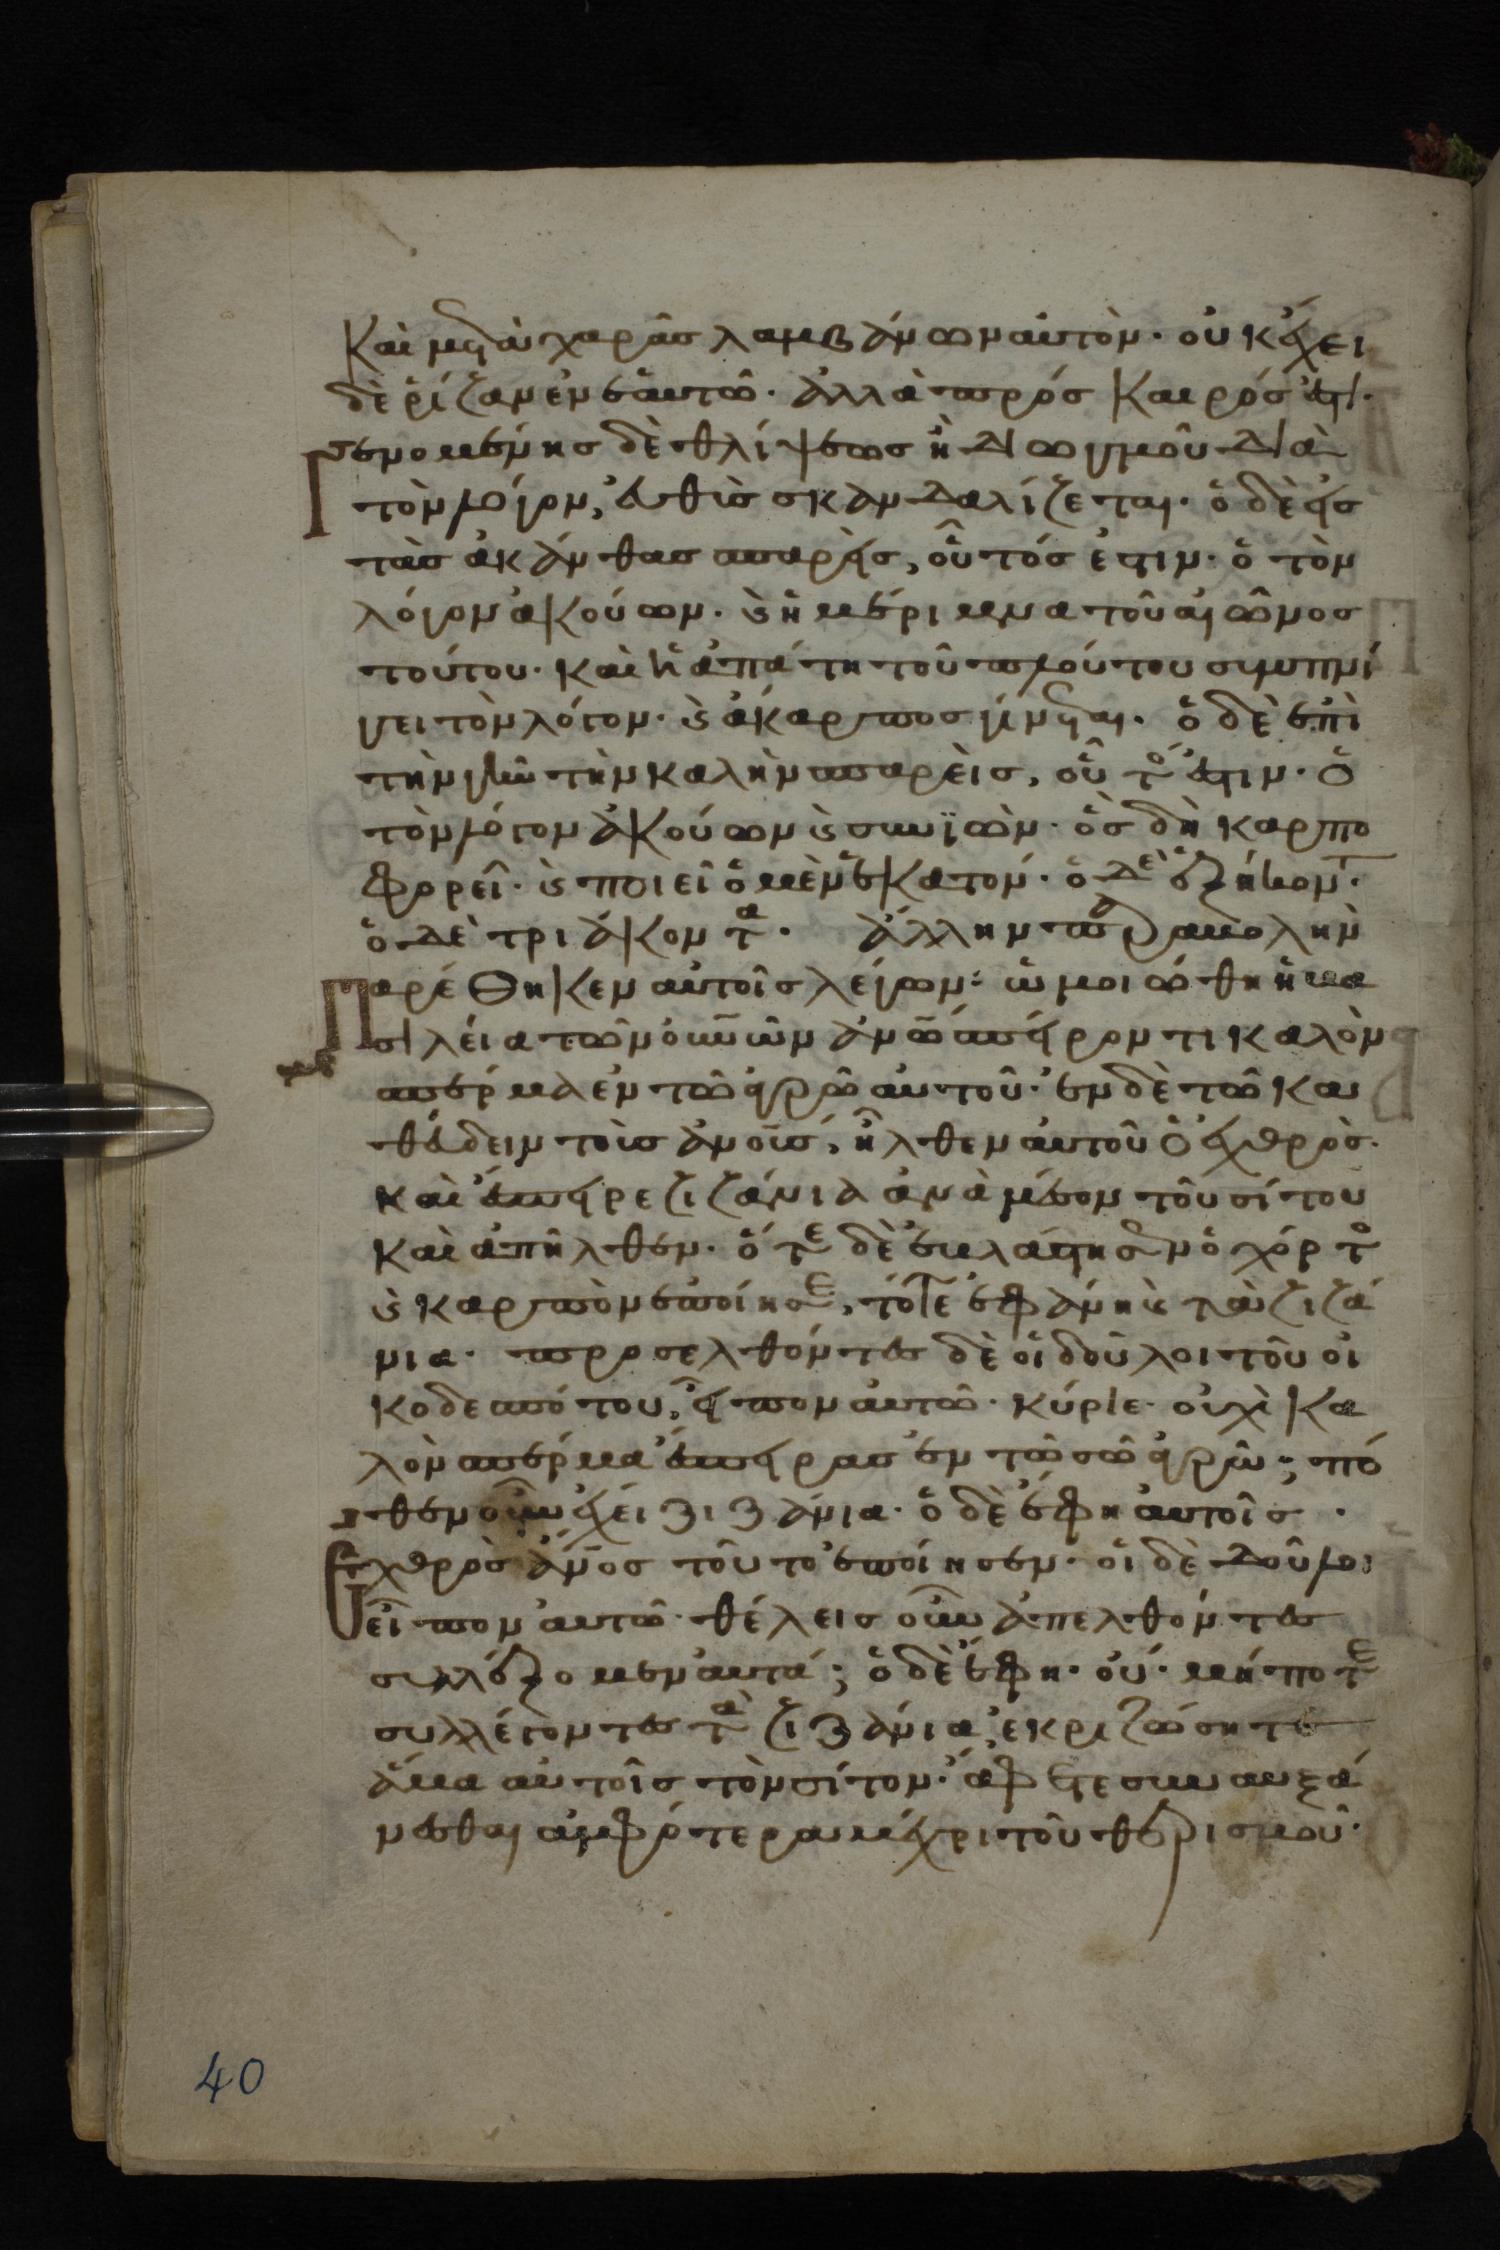 Καὶ μετὰ χαρᾶς λαμβάνων αὐτὸν· οὐκ ἔχει
δὲ ῥίζαν ἐν ἑαυτῶ· ἀλλὰ πρόσκαιρός ἐστι·
Γενομένης δὲ θλίψεως ἢ διωγμοῦ διὰ
τὸν λόγον, εὐθὺς σκανδαλίζεται· ὁ δὲ εἰς
τὰς ἀκάνθας σπαρεὶς, οὗτός ἐστιν· ὁ τὸν
λόγον ἀκούων· ϗ ἡ μέριμνα τοῦ αἰῶνος
τούτου· καὶ ἡ ἀπάτη τοῦ πλούτου συμπνί
γει τὸν λόγον· ϗ ἄκαρπος γίνεται· ὁ δὲ ἐπὶ
τὴν γῆν τὴν καλὴν σπαρεὶς, οὗτός ἐστιν· ὁ
τὸν λόγον ἀκούων ϗ συνϊὼν· ὃς δὴ καρπο
φορεῖ· ϗ ποιεῖ ὁ μὲν ἑκατόν· ὁ δὲ ἑξήκοντ·
ὁ δὲ τριάκοντα· ἄλλην παραβολὴν
Παρέθηκεν αὐτοῖς λέγων· ὡμοιώθη ἡ βα
σιλεία τῶν οὐνῶν ἀνῶ σπείροντι καλὸν
σπέρμα ἐν τῶ ἀγρῶ αὐτοῦ· ἐν δὲ τῶ κα
θεύδειν τοὺς ἀνους, ἦλθεν αὐτοῦ ὁ ἐχθρὸς·
καὶ ἔσπειρε ζιζάνια ἀνὰ μέσον τοῦ σίτου
καὶ ἀπῆλθεν· ὅτε δὲ ἐβλάστησεν ὁ χόρτος
ϗ καρπὸν ἐποίησε, τότε ἐφάνη ϗ τὰ ζιζά
νια· προσελθόντες δὲ οἱ δοῦλοι τοῦ οἰ
κοδεσπότου, εἶπον αὐτῶ· κύριε· οὐχὶ κα
λὸν σπέρμα ἔσπειρας ἐν τῶ σῶ ἀγρῶ; πό
θεν οὖν ἔχει ζιζάνια· ὁ δὲ ἔφη αὐτοῖς·
Ἐχθρὸς ἄνος τοῦτο ἐποίησεν· οἱ δὲ δοῦλοι
εἶπον αὐτῶ· θέλεις οὖν ἀπελθόντες
συλλέξομεν αὐτά; ὁ δὲ ἔφη· οὐ· μήποτε
συλλέγοντες τὰ ζιζάνια, ἐκριζώσητε
ἅμα αὐτοῖς τὸν σίτον· ἄφετε συναυξά
νεσθαι ἀμφότερα μέχρι τοῦ θερισμοῦ·
40